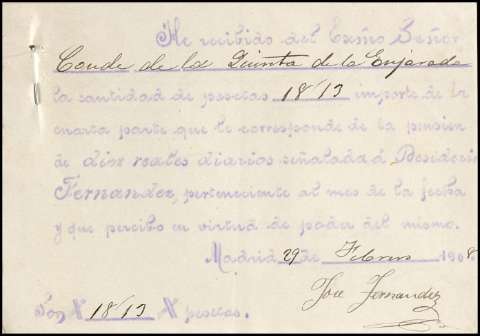 He recibido del Exmo Señor
Conde de la Quinta de la Enjarada
la cantidad de pesetas 18'13 importe de la
cuarta parte que le corresponde de la pension
de diez reales diarios señalada á Desiderio
Fernandez, perteneciente al mes de la fecha
y que percibo en virtud de poder del mismo.
Madrid 29 de Febrero 1908.
Jose Fernandez
Son # 18'13 # pesetas.